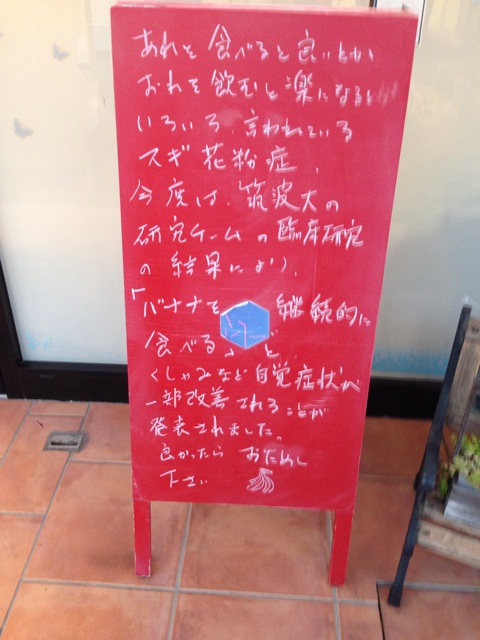 あれを 食べると良いとか
おれを飲むと楽になるとか
いろいろ、言われている
スギ花粉症、
今度は、筑波大の
研究チームの臨床研究
の結果により、
「バナナを 継続的に
食べる」と、
くしゃみなど自覚症状が
一部改善されることが
発表されました。
良かったら おためし
下さい